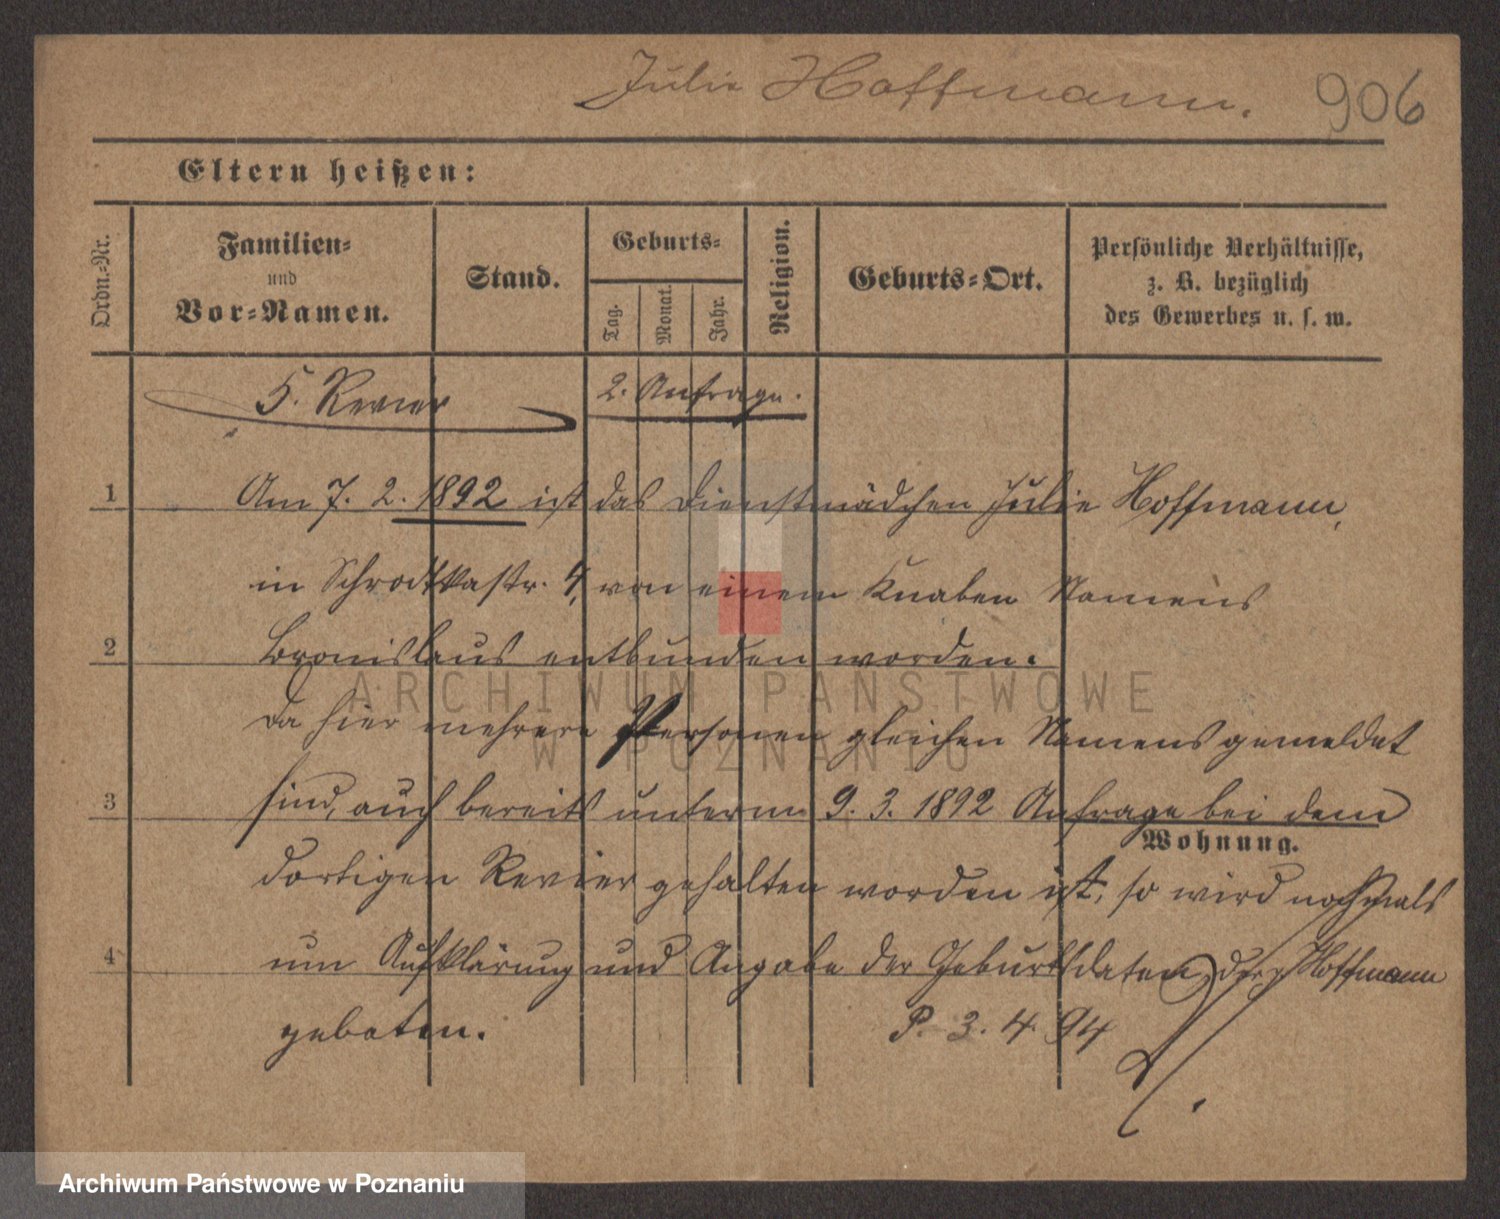 Julie Hoffmann.
906
Eltern heißen:
Ordn.-Nr.
Familien-
und
Vor-Namen.
Stand.
Geburts-
Tag.
Monat.
Jahr.
Religion.
Geburts-Ort.
Persönliche Verhältnisse,
z. B. bezüglich
des Gewerbes u. s. w.
5. Revier
2. Anfrage.
1
Am 7. 2. 1892 ist das Dienstmädchen Julie Hoffmann,
in Schrodkastr. 4, von einem Knaben Namens
2
Bronislaus entbunden worden.
Da hier mehrere Personen gleichen Namens gemeldet
3
sind, auch bereits unterm 9. 3. 1892 Anfrage bei dem
Wohnung.
dortigen Revier gehalten worden ist, so wird nochmals
4
um Aufklärung und Angabe der Geburtsdaten der p Hoffmann
gebeten.
P. 3. 4. 94
ARCHIWUM PAŃSTWOWE
W POZNANIU
Archiwum Państwowe w Poznaniu